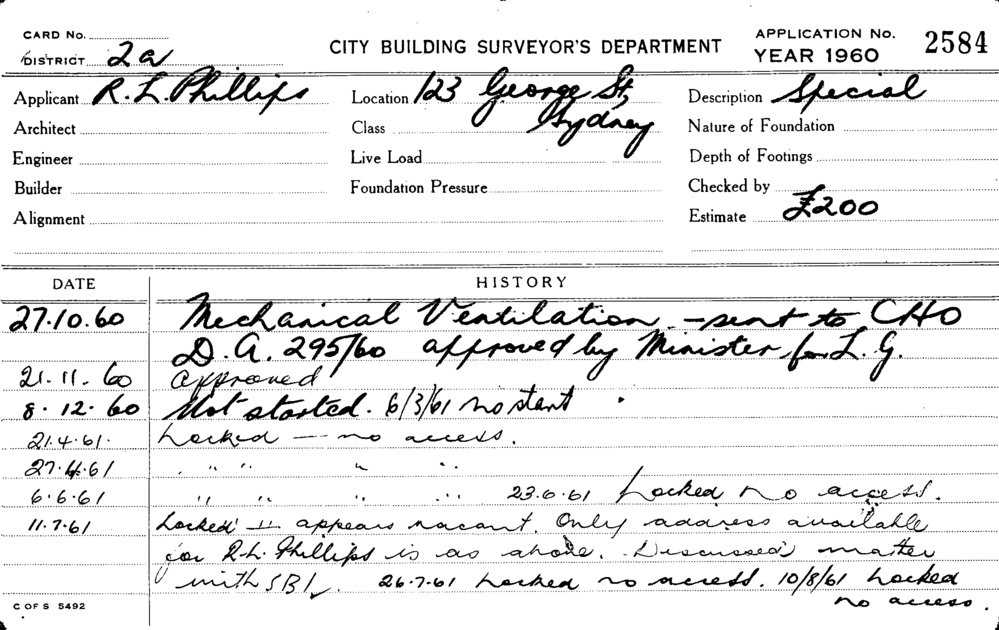 CARD No.
DISTRICT 2a
CITY BUILDING SURVEYOR'S DEPARTMENT
APPLICATION No. 2584
YEAR 1960
Applicant R. L. Phillips Location 123 George St, Description Special
Architect Class Sydney Nature of Foundation
Engineer Live Load Depth of Footings
Builder Foundation Pressure Checked by
Alignment Estimate £200
DATE HISTORY
27.10.60 Mechanical Ventilation - sent to CHO
D.A. 295/60 approved by Minister for L.G.
21.11.60 Approved
8.12.60 Not started. 6/3/61 no start.
21.4.61. Locked — no access.
27.4.61 " " " "
6.6.61 " " " " 23.6.61 Locked no access.
11.7.61 Locked appears vacant. Only address available
for R.L. Phillips is as above. Discussed matter
with SBI 26.7.61 Locked no access. 10/8/61 Locked
no access.
C OF S 5492